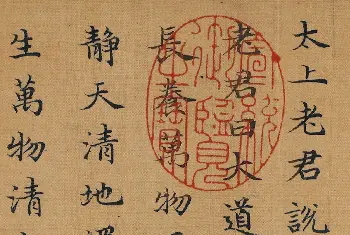 太上老君說
老君曰大道
長養萬物
靜天清地
生萬物清